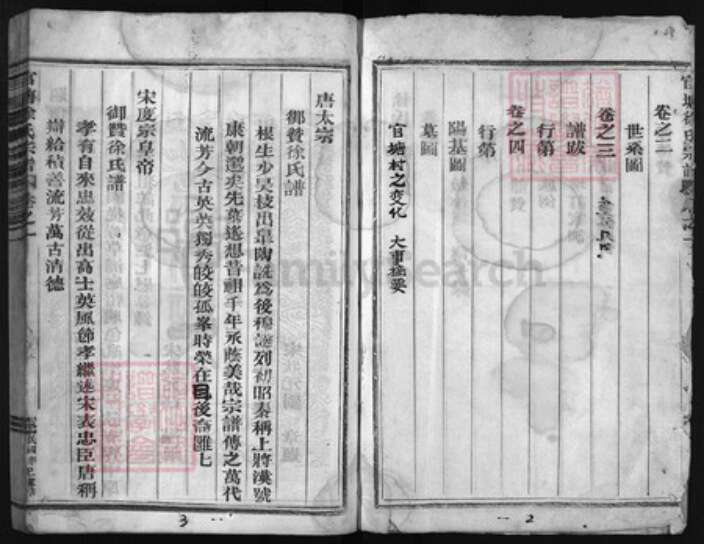 卷之二
世系圖
卷之三
譜跋
行第
卷之四
行第
陽基圖
墓圖
官塘村之变化 大事摘要
2
唐太宗
御贊徐氏譜
根生少昊枝出皐陶誕爲後穆謚列初昭秦稱上將漢號
康朝邈矣先葉遙想昔祖千年承蔭美哉宗譜傳之萬代
流芳今古英英獨秀皎皎孤峯時榮在目後裔匯七
宋度宗皇帝
御贊徐氏譜
孝有自來忠效從出高士英風節孝繼述宋表忠臣唐稱
辯給積善流芳萬古清德
3